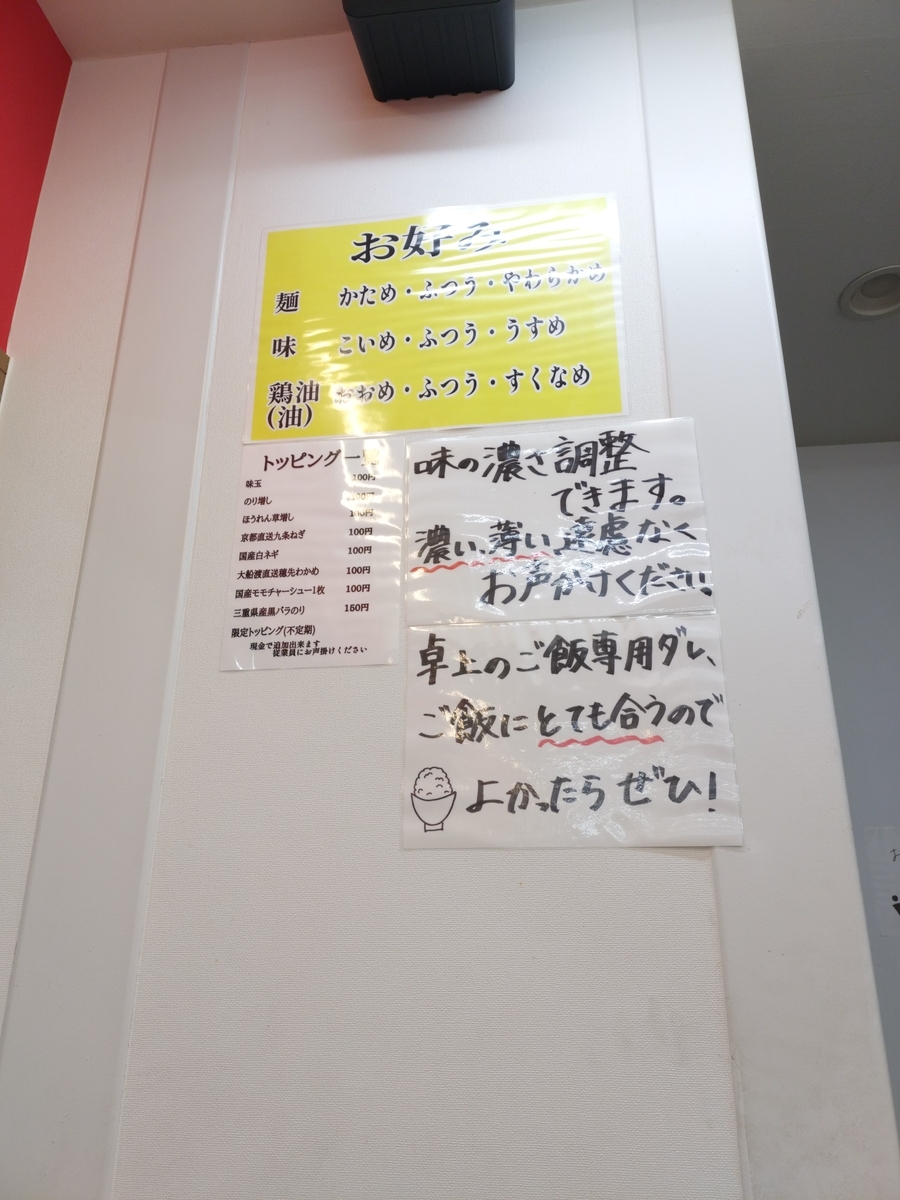 お好み
麺 かため・ふつう・やわらかめ
味 こいめ・ふつう・うすめ
鶏油 おおめ・ふつう・すくなめ
(油)
トッピング一覧
味玉 100円
のり増し 100円
ほうれん草増し 100円
京都直送九条ねぎ 100円
国産白ネギ 100円
大船渡直送穂先わかめ 100円
国産モモチャーシュー1枚 100円
三重県産黒バラのり 150円
限定トッピング(不定期)
現金で追加出来ます
従業員にお声掛けください
味の濃さ調整
できます。
濃い、薄い、遠慮なく
お声がけください
卓上のご飯専用ダレ、
ご飯にとても合うので
よかったらぜひ!